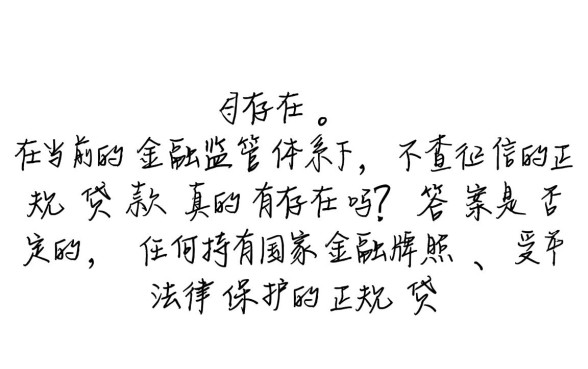 存在。
在当前的金融监管体系下，不查征信的正
规贷款真的有存在吗？答案是否
定的， 任何持有国家金融牌照、受
法律保护的正规贷